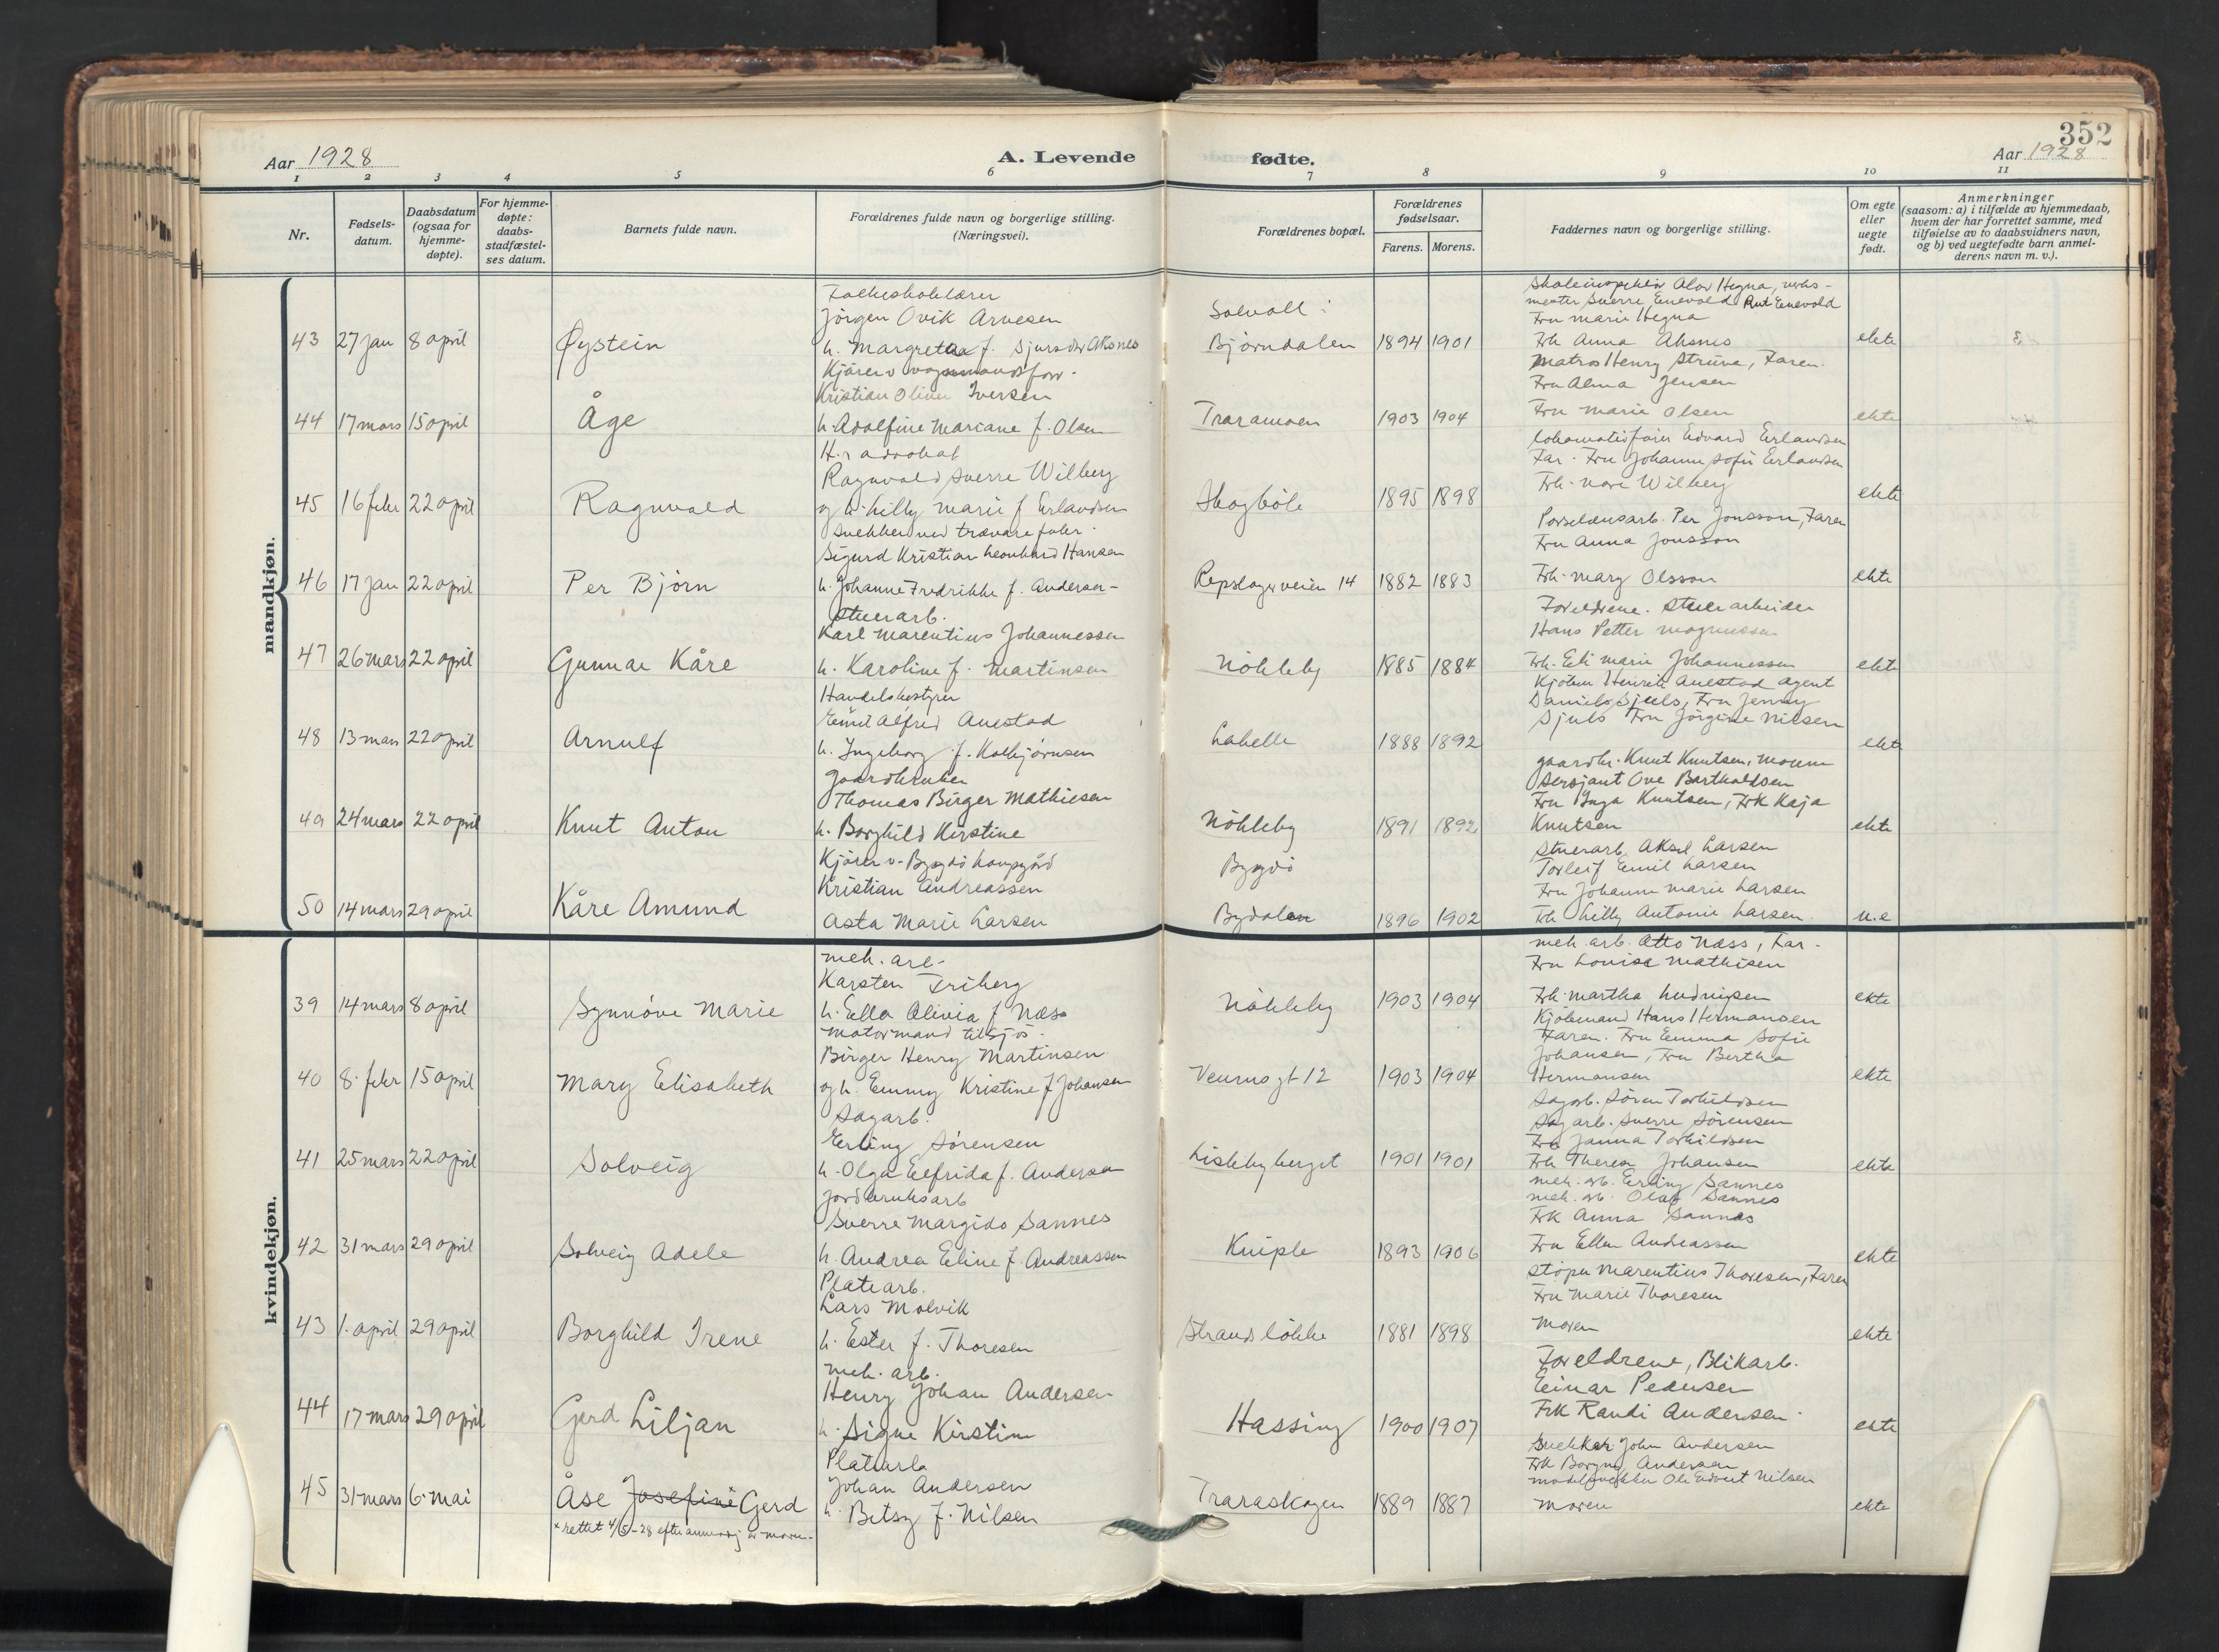 352
Aar 1928
A. Levende fødte.
Aar 1928
1 2 3 4 5 6 7 8 9 10 11
Nr.
Fødsels-
datum.
Daabsdatum
(ogsaa for
hjemme-
døpte).
For hjemme-
døpte:
daabs-
stadfæstel-
ses datum.
Barnets fulde navn.
Forældrenes fulde navn og borgerlige stilling.
(Næringsvei).
Forældrenes bopæl.
Forældrenes
fødselsaar.
Farens. Morens.
Faddernes navn og borgerlige stilling.
Om egte
eller
uegte
født.
Anmerkninger
(saasom: a) i tilfælde av hjemmedaab,
hvem der har forrettet samme, med
tilføielse av to daabsvidners navn,
og b) ved uegtefødte barn anmel-
derens navn m. v.).
mandkjøn.
43 27 jan 8 april Øystein
Folkeskolelærer
Jörgen Ovik Arvesen
h. Margretha f. Sjursdtr Aksnes
Solvoll i
Bjørndalen 1894 1901
Skoleinspektör Olav Hegna, verks-
mester Sverre Enevold Rut Enevold
Fru Marie Hegna
Frk Anna Aksnes
ekte
44 17 mars 15 april Åge
Kjörer v vognmandsforr.
Kristian Oliver Iversen
h. Adolfine Mariane f. Olsen
Traramoen 1903 1904
Matros Henry Strüve, Faren.
Fru Alma Jensen
Fru Marie Olsen
ekte
45 16 febr 22 april Ragnvald
H.r advokat
Ragnvald Sverre Wilberg
og h. Lilly Marie f Erlandsen
Skogböle 1895 1898
Lokomotivförer Edvard Erlandsen
Far. Fru Johanne Sofie Erlandsen
Frk. Vore Wilberg
ekte
46 17 jan 22 april Per Björn
Snekker ved trævarefabr.
Sigurd Kristian Leonhard Hansen
h. Johanne Fredrikke f. Andersen
Repslagerveien 14 1882 1883
Porselænsarb. Per Jonsson, Faren
Fru Anna Jonsson
Frk. Mary Olsson
ekte
47 26 mars 22 april Gunnar Kåre
Stuerarb.
Karl Marentius Johannessen
h. Karoline f. Martinsen
Nökleby 1885 1884
Foreldrene. Stuerarbeider
Hans Petter Magnussen
Frk. Eli Marie Johannessen
ekte
48 13 mars 22 april Arnulf
Handelsbestyrer
Emil Alfred Anestad
h. Ingeborg f. Kolbjørnsen
Labelle 1888 1892
Kjöbm Henrik Anestad agent
Daniel Sjuls, Fru Jenny
Sjuls Fru Jörgine Nilsen
ekte
49 24 mars 22 april Knut Anton
Gaardbruker
Thomas Birger Mathiesen
h. Borghild Kirstine
Nökleby 1891 1892
gaardbr. Knut Knutsen, Moum
Sersjant Ove Bartholdsen
Fru Inga Knutsen, Frk Kaja
Knutsen
ekte
50 14 mars 29 april Kåre Amund
Kjörer v. Bygdö kongsgård
Kristian Andreassen
Asta Marie Larsen
Bygdö
Bydalen 1896 1902
Stuerarb. Aksel Larsen
Torleif Emil Larsen
Fru Johanne Marie Larsen
Frk Lilly Antonie Larsen
u.e
kvindekjøn.
39 14 mars 8 april Synnöve Marie
Mek. arb.
Karsten Friberg
h. Ella Olivia f Næss
Nökleby 1903 1904
Mek. arb. Otto Næss, Far.
Fru Louise Mathisen
Frk. Martha Ludvigsen
ekte
40 8. febr 15 april Mary Elisabeth
Motormand til sjös.
Birger Henry Martinsen
og h. Emmy Kristine f Johansen
Venus gt 12 1903 1904
Kjöbmand Hans Hermansen
Faren. Fru Emma Sofie
Johansen, Fru Bertha
Hermansen
ekte
41 25 mars 22 april Solveig
Sagarb.
Erling Sörensen
h. Olga Elfrida f. Andersen
Lislebyberget 1901 1901
Sagarb. Sören Torkildsen
Sagarb. Sverre Sörensen
Frk Janna Torkildsen
Frk Theresa Johansen
ekte
42 31 mars 29 april Solveig Adele
Jordbruksarb
Sverre Margido Sannes
h. Andrea Eline f. Andreassen
Kniple 1893 1906
Mek. arb. Erling Sannes
Mek. arb. Olaf Sannes
Frk Anna Sannes
Fru Ellen Andreassen
ekte
43 1. april 29 april Borghild Irene
Platearb.
Lars Molvik
h. Ester f. Thoresen
Strandslökke 1881 1898
Stöper Marentius Thoresen, Faren
Fru Marie Thoresen
Moren
ekte
44 17 mars 29 april Gerd Liljan
Mek. arb.
Henry Johan Andersen
h. Signe Kirstine
Hassing 1900 1907
Foreldrene, Blikarb.
Einar Pedersen
Frk Randi Andersen
ekte
45 31 mars 6. mai Åse Josefine Gerd
x rettet 4/5-28 efter anmodn. av moren.
Platearb
Johan Andersen
h. Betsy f. Nilsen
Traraskogen 1889 1887
Snekker John Andersen
Frk Borgny Andersen
Modelsnekker Ole Edvart Nilsen
Moren
ekte